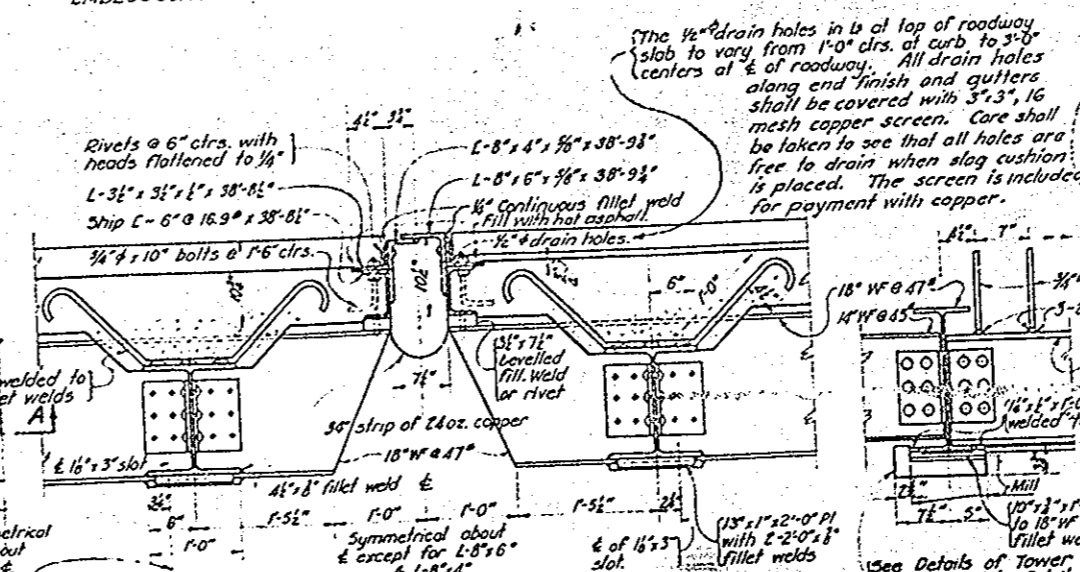 The ½"ᶲ drain holes in ls at top of roadway
slab to vary from 1'-0" ctrs. at curb to 3'-0"
centers at ℄ of roadway. All drain holes
along end finish and gutters
shall be covered with 3"x3", 16
mesh copper screen. Care shall
be taken to see that all holes are
free to drain when slag cushion
is placed. The screen is included
for payment with copper.
4½" 3¾"
Rivets @ 6" ctrs. with
heads flattened to ¼"
L-3½" x 3½" x ½" x 38'-8½"
Ship [- 6" @ 16.9# x 38'-8½"
¾"ϕ x 10" bolts @ 1'-6" ctrs.
L-8" x 4" x ⅝" x 38'-9¾"
L-8" x 6" x ⅝" x 38'-9¾"
Continuous fillet weld
Fill with hot asphalt
½"ϕ drain holes.
10½"
10½"
6"
1'-0"
18" WF @ 47#
14" WF @ 45
8½" 7"
¾"
welded to
et welds
A
7½"
3½" x 7½"
bevelled
fill. Weld
or rivet
34" strip of 24 oz. copper
18" WF @ 47#
℄ 1⅛" x 3" slot
4½" x ⅛" fillet weld ℄
6"
1'-0"
1'-5½" 1'-0" 1'-0" 1'-5½"
Symmetrical about
℄ except for L-8" x 6"
& L-8" x 4"
℄ of 1⅛" x 3"
slot.
13" x 1" x 2'-0" Pl
with 2-2'-0" x ⅛"
fillet welds
welded
Mill
7½" 5"
to 18" WF
fillet we
See Details of Tower
metrical
out
℄